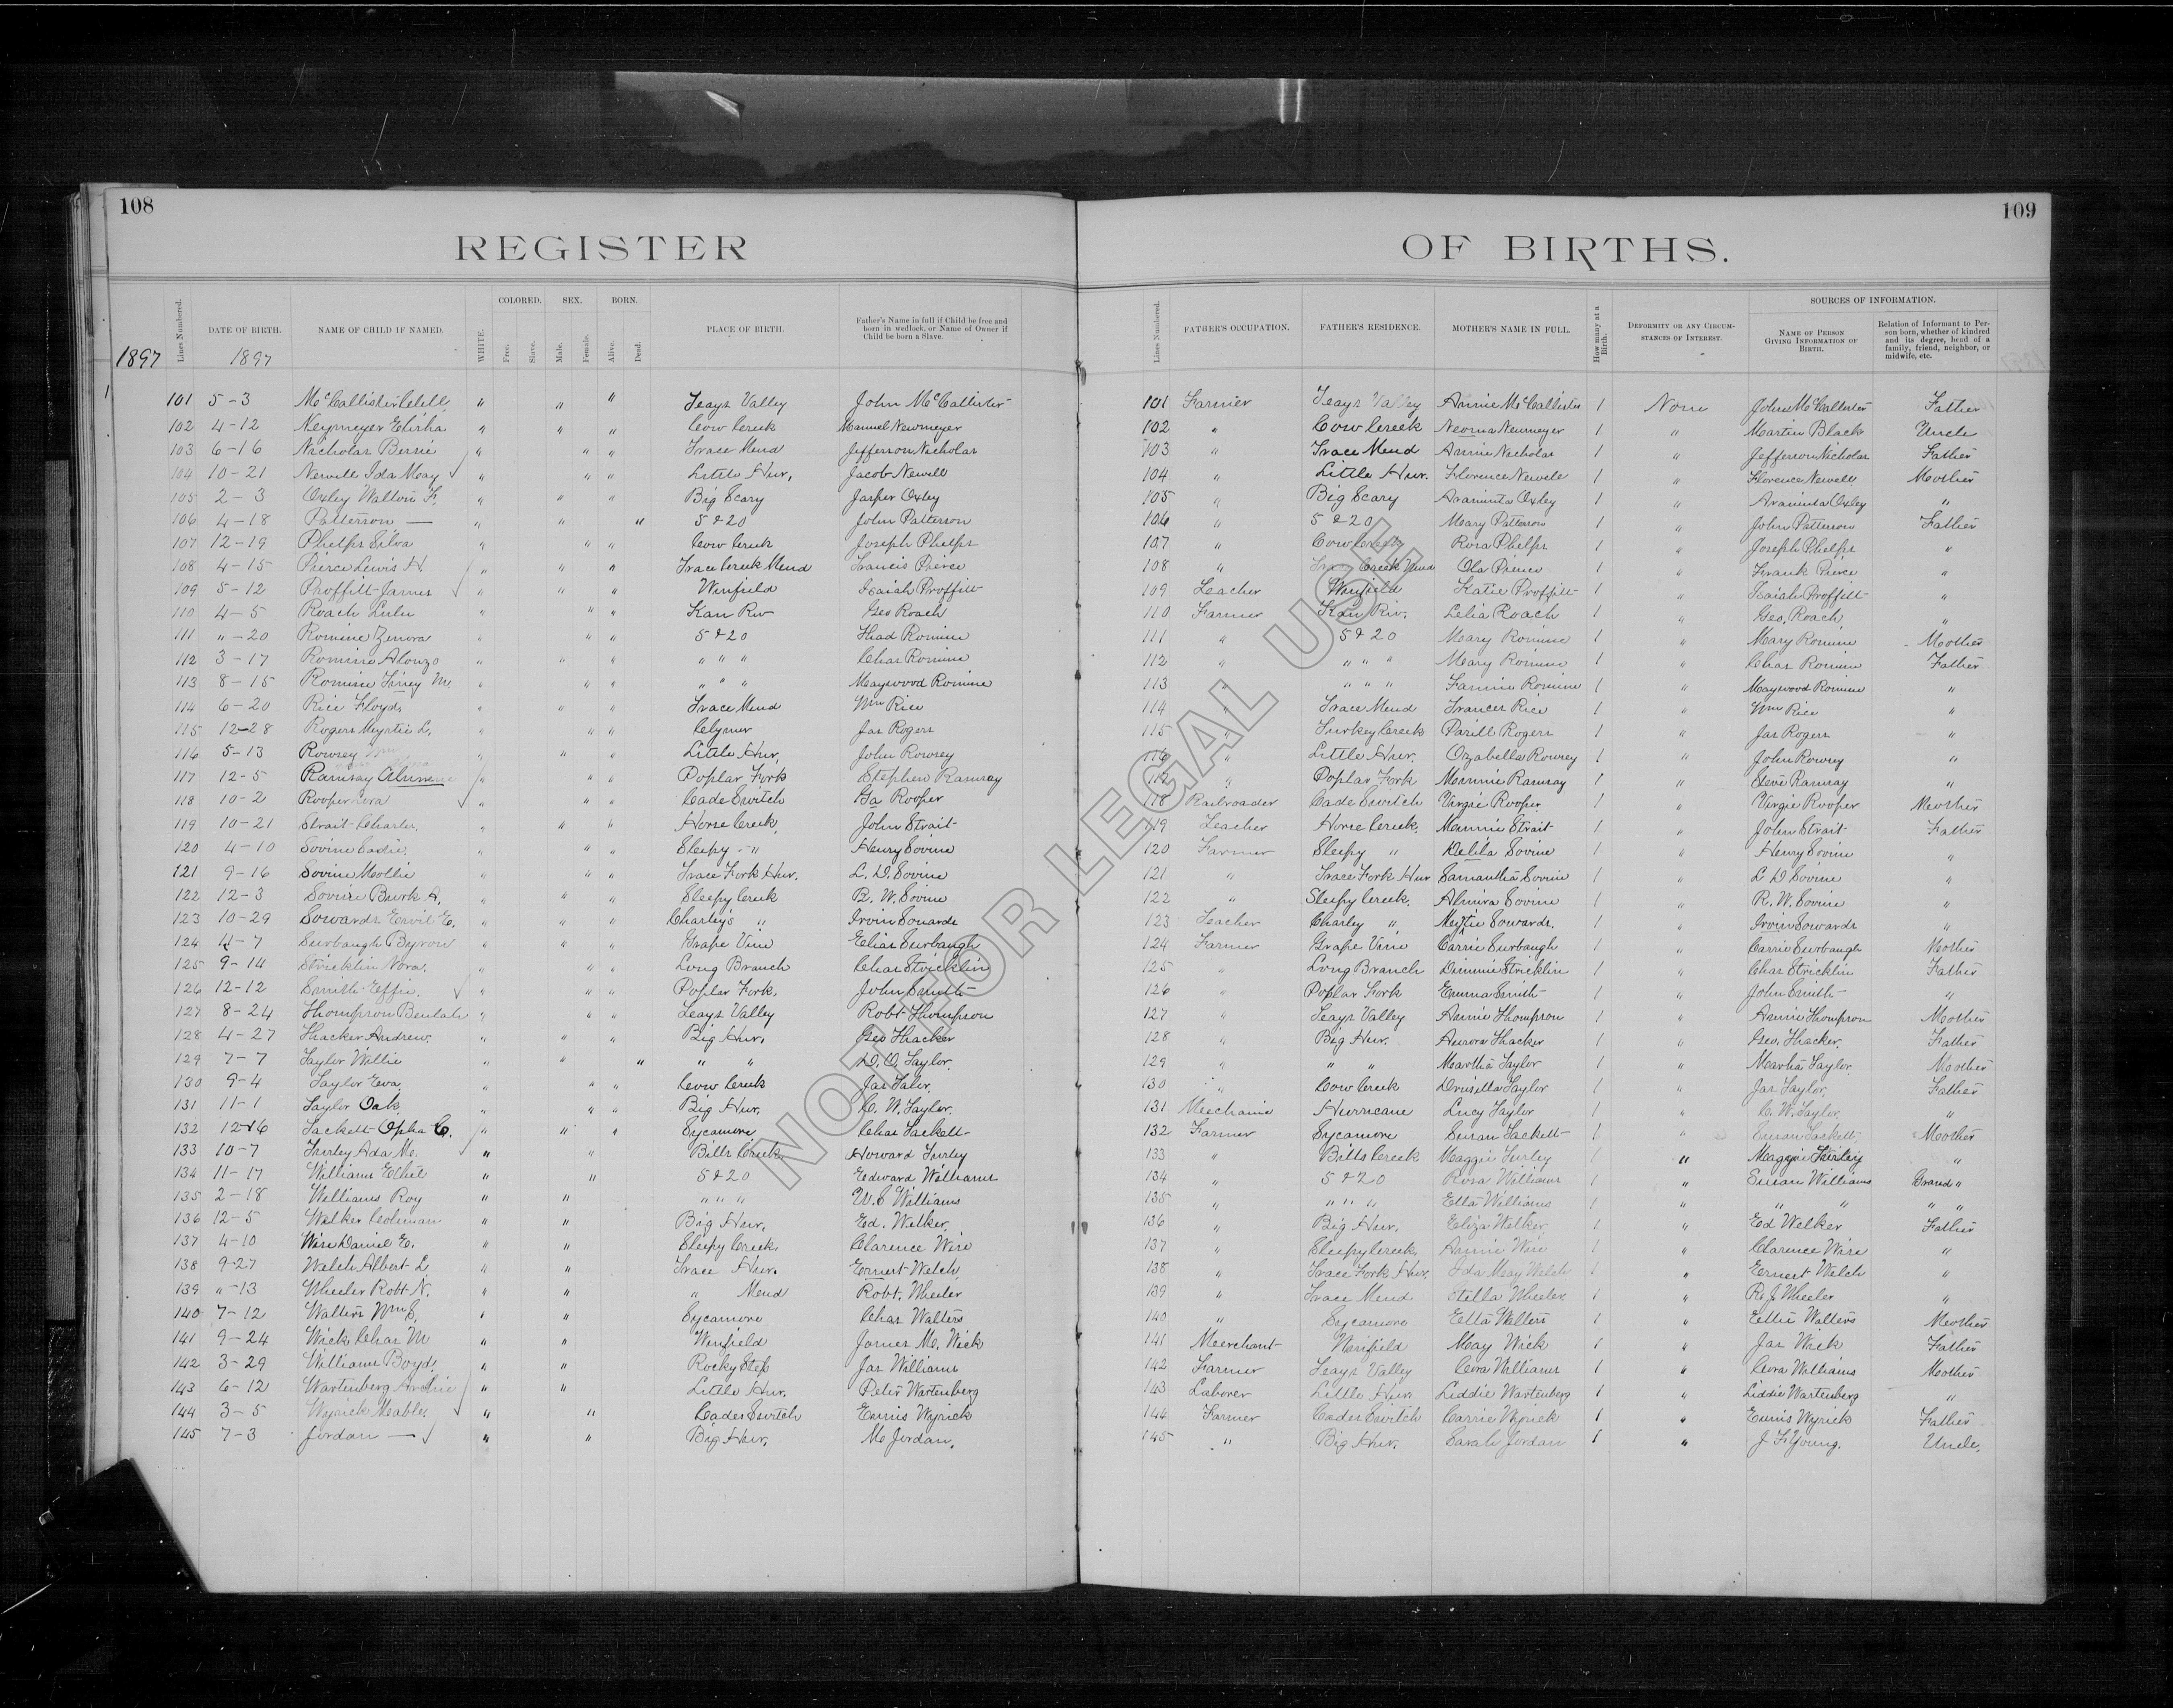 108
REGISTER
109
OF BIRTHS.
1897
Lines Numbered. DATE OF BIRTH. 1897 NAME OF CHILD IF NAMED. WHITE. COLORED. Free. Slave. SEX. Male. Female. BORN. Alive. Dead. PLACE OF BIRTH. Father's Name in full if Child be free and born in wedlock, or Name of Owner if Child be born a Slave.
Lines Numbered. FATHER'S OCCUPATION. FATHER'S RESIDENCE. MOTHER'S NAME IN FULL. How many at a Birth. DEFORMITY OR ANY CIRCUMSTANCES OF INTEREST. SOURCES OF INFORMATION. NAME OF PERSON GIVING INFORMATION OF BIRTH. Relation of Informant to Person born, whether of kindred and its degree, head of a family, friend, neighbor, or midwife, etc.
101 5-3 McCallister " " " Teays Valley John McCallister 101 Farmer Teays Valley Annie McCallister 1 None John McCallister Father
102 4-12 Neymeyer Elisha " " " Cow Creek Manuel Newmeyer 102 " Cow Creek Neoma Neumeyer 1 " Martin Black Uncle
103 6-16 Nicholas Bessie " " " Trace Mend Jefferson Nicholas 103 " Trace Mend Annie Nicholas 1 " Jefferson Nicholas Father
104 10-21 Newell Ida May " " " Little Hur. Jacob Newell 104 " Little Hur. Florence Newell 1 " Florence Newell Mother
105 2-3 Oxley Walter F. " " " Big Scary Jasper Oxley 105 " Big Scary Araminta Oxley 1 " Araminta Oxley "
106 4-18 Patterson — " " " 5 & 20 John Patterson 106 " 5 & 20 Mary Patterson 1 " John Patterson Father
107 12-19 Phelps Silva " " " Cow Creek Joseph Phelps 107 " Cow Creek Rosa Phelps 1 " Joseph Phelps "
108 4-15 Pierce Lewis H. " " " Trace Creek Mend Francis Pierce 108 " Trace Creek Mend Ola Pierce 1 " Frank Pierce "
109 5-12 Proffitt James " " " Winfield Isaiah Proffitt 109 Teacher Winfield Katie Proffitt 1 " Isaiah Proffitt "
110 4-5 Roach Lulu " " " Kan Riv Geo Roach 110 Farmer Kan Riv. Lelia Roach 1 " Geo. Roach "
111 "-20 Romine Zenora " " " 5 & 20 Thad Romine 111 " 5 & 20 Mary Romine 1 " Mary Romine Mother
112 3-17 Romine Alonzo " " " " " " Chas Romine 112 " " " " Mary Romine 1 " Chas Romine Father
113 8-15 Romine M. " " " " " " Mayswood Romine 113 " " " " Fannie Romine 1 " Mayswood Romine "
114 6-20 Rice Floyd " " " Trace Mend Wm Rice 114 " Trace Mend Frances Rice 1 " Wm Rice "
115 12-28 Rogers Myrtie L. " " " Clymer Jas Rogers 115 " Turkey Creek Rogers 1 " Jas Rogers "
116 5-13 Rowsey Wm " " " Little Hur. John Rowsey 116 " Little Hur. Ozabella Rowsey 1 " John Rowsey "
117 12-5 Ramsay " " " Poplar Fork Stephen Ramsay 117 " Poplar Fork Ramsay 1 " Steve Ramsay "
118 10-2 Rooper " " " Cade Switch Ga Rooper 118 Railroader Cade Switch Virgie Rooper 1 " Virgie Rooper Mother
119 10-21 Strait Charles " " " Horse Creek John Strait 119 Teacher Horse Creek. Strait 1 " John Strait Father
120 4-10 Sovine Sadie " " " Sleepy " Henry Sovine 120 Farmer Sleepy " Delila Sovine 1 " Henry Sovine "
121 9-16 Sovine Mollie " " " Trace Fork Hur. L. D. Sovine 121 " Trace Fork Hur Samantha Sovine 1 " L D Sovine "
122 12-3 Sovine Burk A. " " " Sleepy Creek R. W. Sovine 122 " Sleepy Creek. Almira Sovine 1 " R. W. Sovine "
123 10-29 Sowards Ervil E. " " " Charley's " Irvin Sowards 123 Teacher Charley " Sowards. 1 " Irvin Sowards "
124 11-7 Surbaugh Byron " " " Grape Vine Elias Surbaugh 124 Farmer Grape Vine Carrie Surbaugh 1 " Carrie Surbaugh Mother
125 9-14 Stricklin Nora. " " " Long Branch Chas Stricklin 125 " Long Branch Stricklin 1 " Chas Stricklin Father
126 12-12 Smith Effie. " " " Poplar Fork. John Smith 126 " Poplar Fork Emma Smith 1 " John Smith "
127 8-24 Thompson Beulah " " " Teays Valley Robt Thompson 127 " Teays Valley Annie Thompson 1 " Annie Thompson Mother
128 4-27 Thacker Andrew. " " " Big Hur. Geo Thacker 128 " Big Hur. Aurora Thacker 1 " Geo. Thacker. Father
129 7-7 Taylor Willie " " " " " D. O. Taylor. 129 " " " Martha Taylor 1 " Martha Taylor Mother
130 9-4 Taylor Eva. " " " Cow Creek Jas Taler. 130 " Cow Creek Drusilla Taylor 1 " Jas Taylor. Father
131 11-1 Taylor Oak " " " Big Hur. C. W. Taylor. 131 Mechanic Hurricane Lucy Taylor 1 " C. W. Taylor. "
132 12-16 Tackett Opha C. " " " Sycamore Chas Tackett 132 Farmer Sycamore Susan Tackett 1 " Susan Tackett Mother
133 10-7 Turley Ada M. " " Bills Creek Howard Turley 133 " Bills Creek Maggie Turley 1 " Maggie Turley "
134 11-17 Williams " " 5 & 20 Edward Williams 134 " 5 & 20 Rosa Williams 1 " Susan Williams Grand "
135 2-18 Williams Roy " " " " " Williams 135 " " " " Etta Williams 1 " " " " "
136 12-5 Walker Coleman " " Big Hur. Ed. Walker. 136 " Big Hur. Eliza Walker 1 " Ed Walker Father
137 4-10 Wise Daniel E. " " Sleepy Creek. Clarence Wise 137 " Sleepy Creek. Annie Wise 1 " Clarence Wise "
138 9-27 Welch Albert L " " Trace Hur. Ernest Welch 138 " Trace Fork Hur. Ida May Welch 1 " Ernest Welch "
139 "-13 Wheeler Robt N. " " " Mend Robt. Wheeler 139 " Trace Mend Stella Wheeler 1 " R. J Wheeler "
140 7-12 Walters Wm S. " " Sycamore Chas Walters 140 " Sycamore Etta Walters 1 " Ettie Walters Mother
141 9-24 Wick Chas M " " Winfield James M. Wick 141 Merchant Winfield May Wick 1 " Jas Wick Father
142 3-29 Williams Boyd. " " Rocky Step Jas Williams 142 Farmer Teays Valley Cora Williams 1 " Cora Williams Mother
143 6-12 Wartenberg Archie " " Little Hur. Peter Wartenberg 143 Laborer Little Hur. Liddie Wartenberg 1 " Liddie Wartenberg "
144 3-5 Wyrick Meable. " " Cades Switch Ennis Wyrick 144 Farmer Cades Switch Carrie Wyrick 1 " Ennis Wyrick Father
145 7-3 Jordan — " " Big Hur. M. Jordan. 145 " Big Hur. Sarah Jordan 1 " J F Young. Uncle.
NOT FOR LEGAL USE